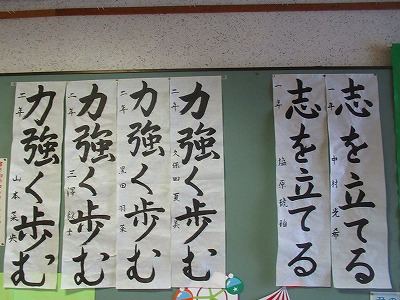 志を立てる
一年 中村光希
志を立てる
一年 塩原琉翔
力強く歩む
二年 久保田夏美
力強く歩む
二年 黒田羽菜
力強く歩む
二年 三澤
力強く歩む
二年 山本菜央